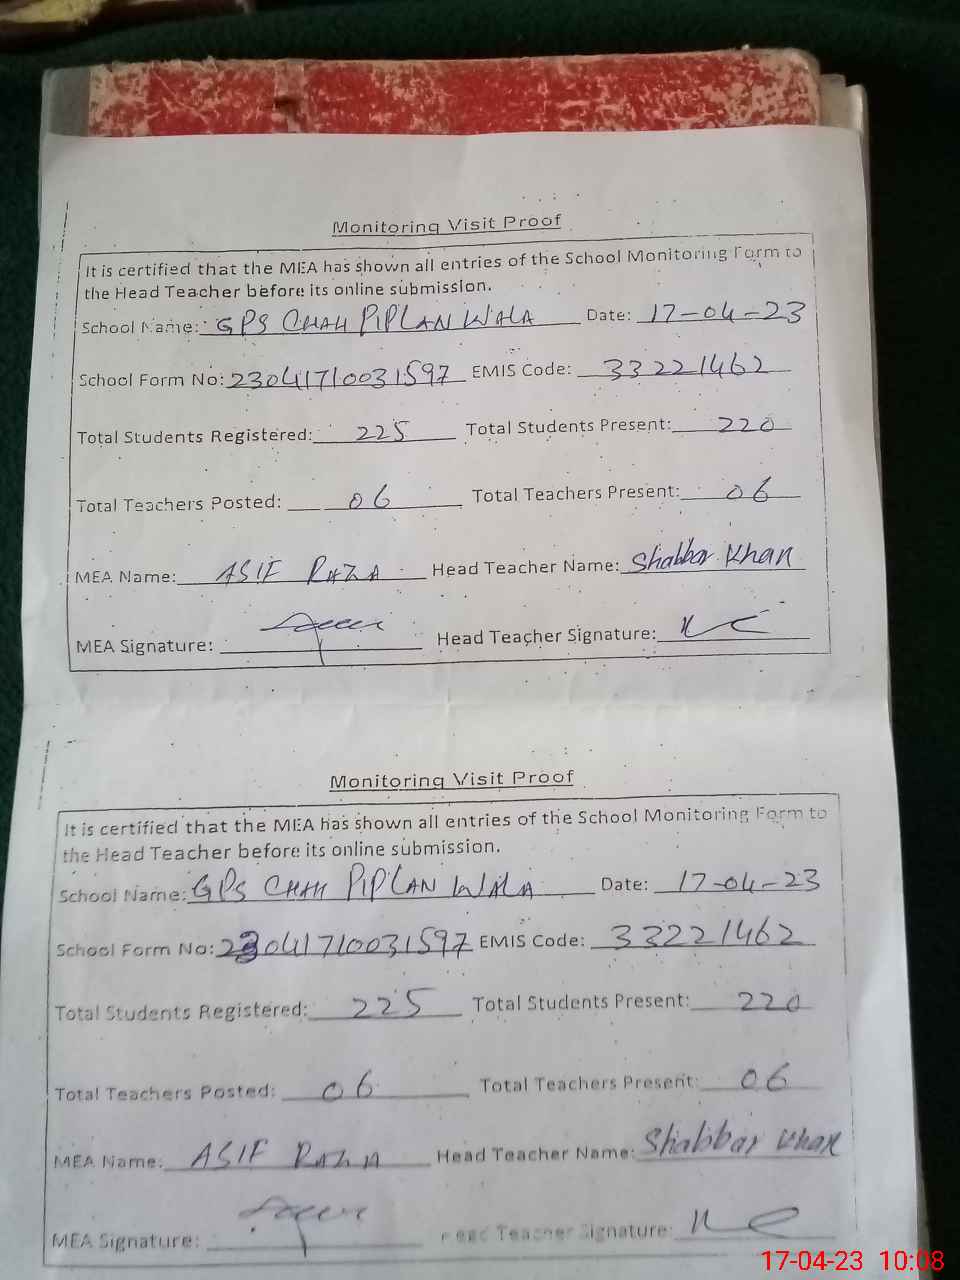 Monitoring Visit Proof
It is certified that the MEA has shown all entries of the School Monitoring Form to
the Head Teacher before its online submission.
School Name: GPS CHAH PIPLAN WALA Date: 17-04-23
School Form No: 23041710031597 EMIS Code: 33221462
Total Students Registered: 225 Total Students Present: 220
Total Teachers Posted: 06 Total Teachers Present: 06
MEA Name: ASIF RAZA Head Teacher Name: Shabbar Khan
MEA Signature: Head Teacher Signature:
Monitoring Visit Proof
It is certified that the MEA has shown all entries of the School Monitoring Form to
the Head Teacher before its online submission.
School Name: GPS CHAH PIPLAN WALA Date: 17-04-23
School Form No: 23041710031597 EMIS Code: 33221462
Total Students Registered: 225 Total Students Present: 220
Total Teachers Posted: 06 Total Teachers Present: 06
MEA Name: ASIF RAZA Head Teacher Name: Shabbar Khan
MEA Signature: Head Teacher Signature:
17-04-23 10:08